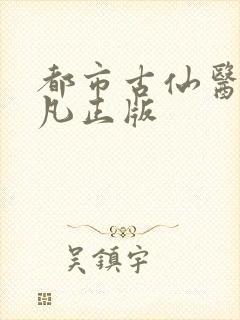 都市古仙醫
凡正版
吴鎮宇